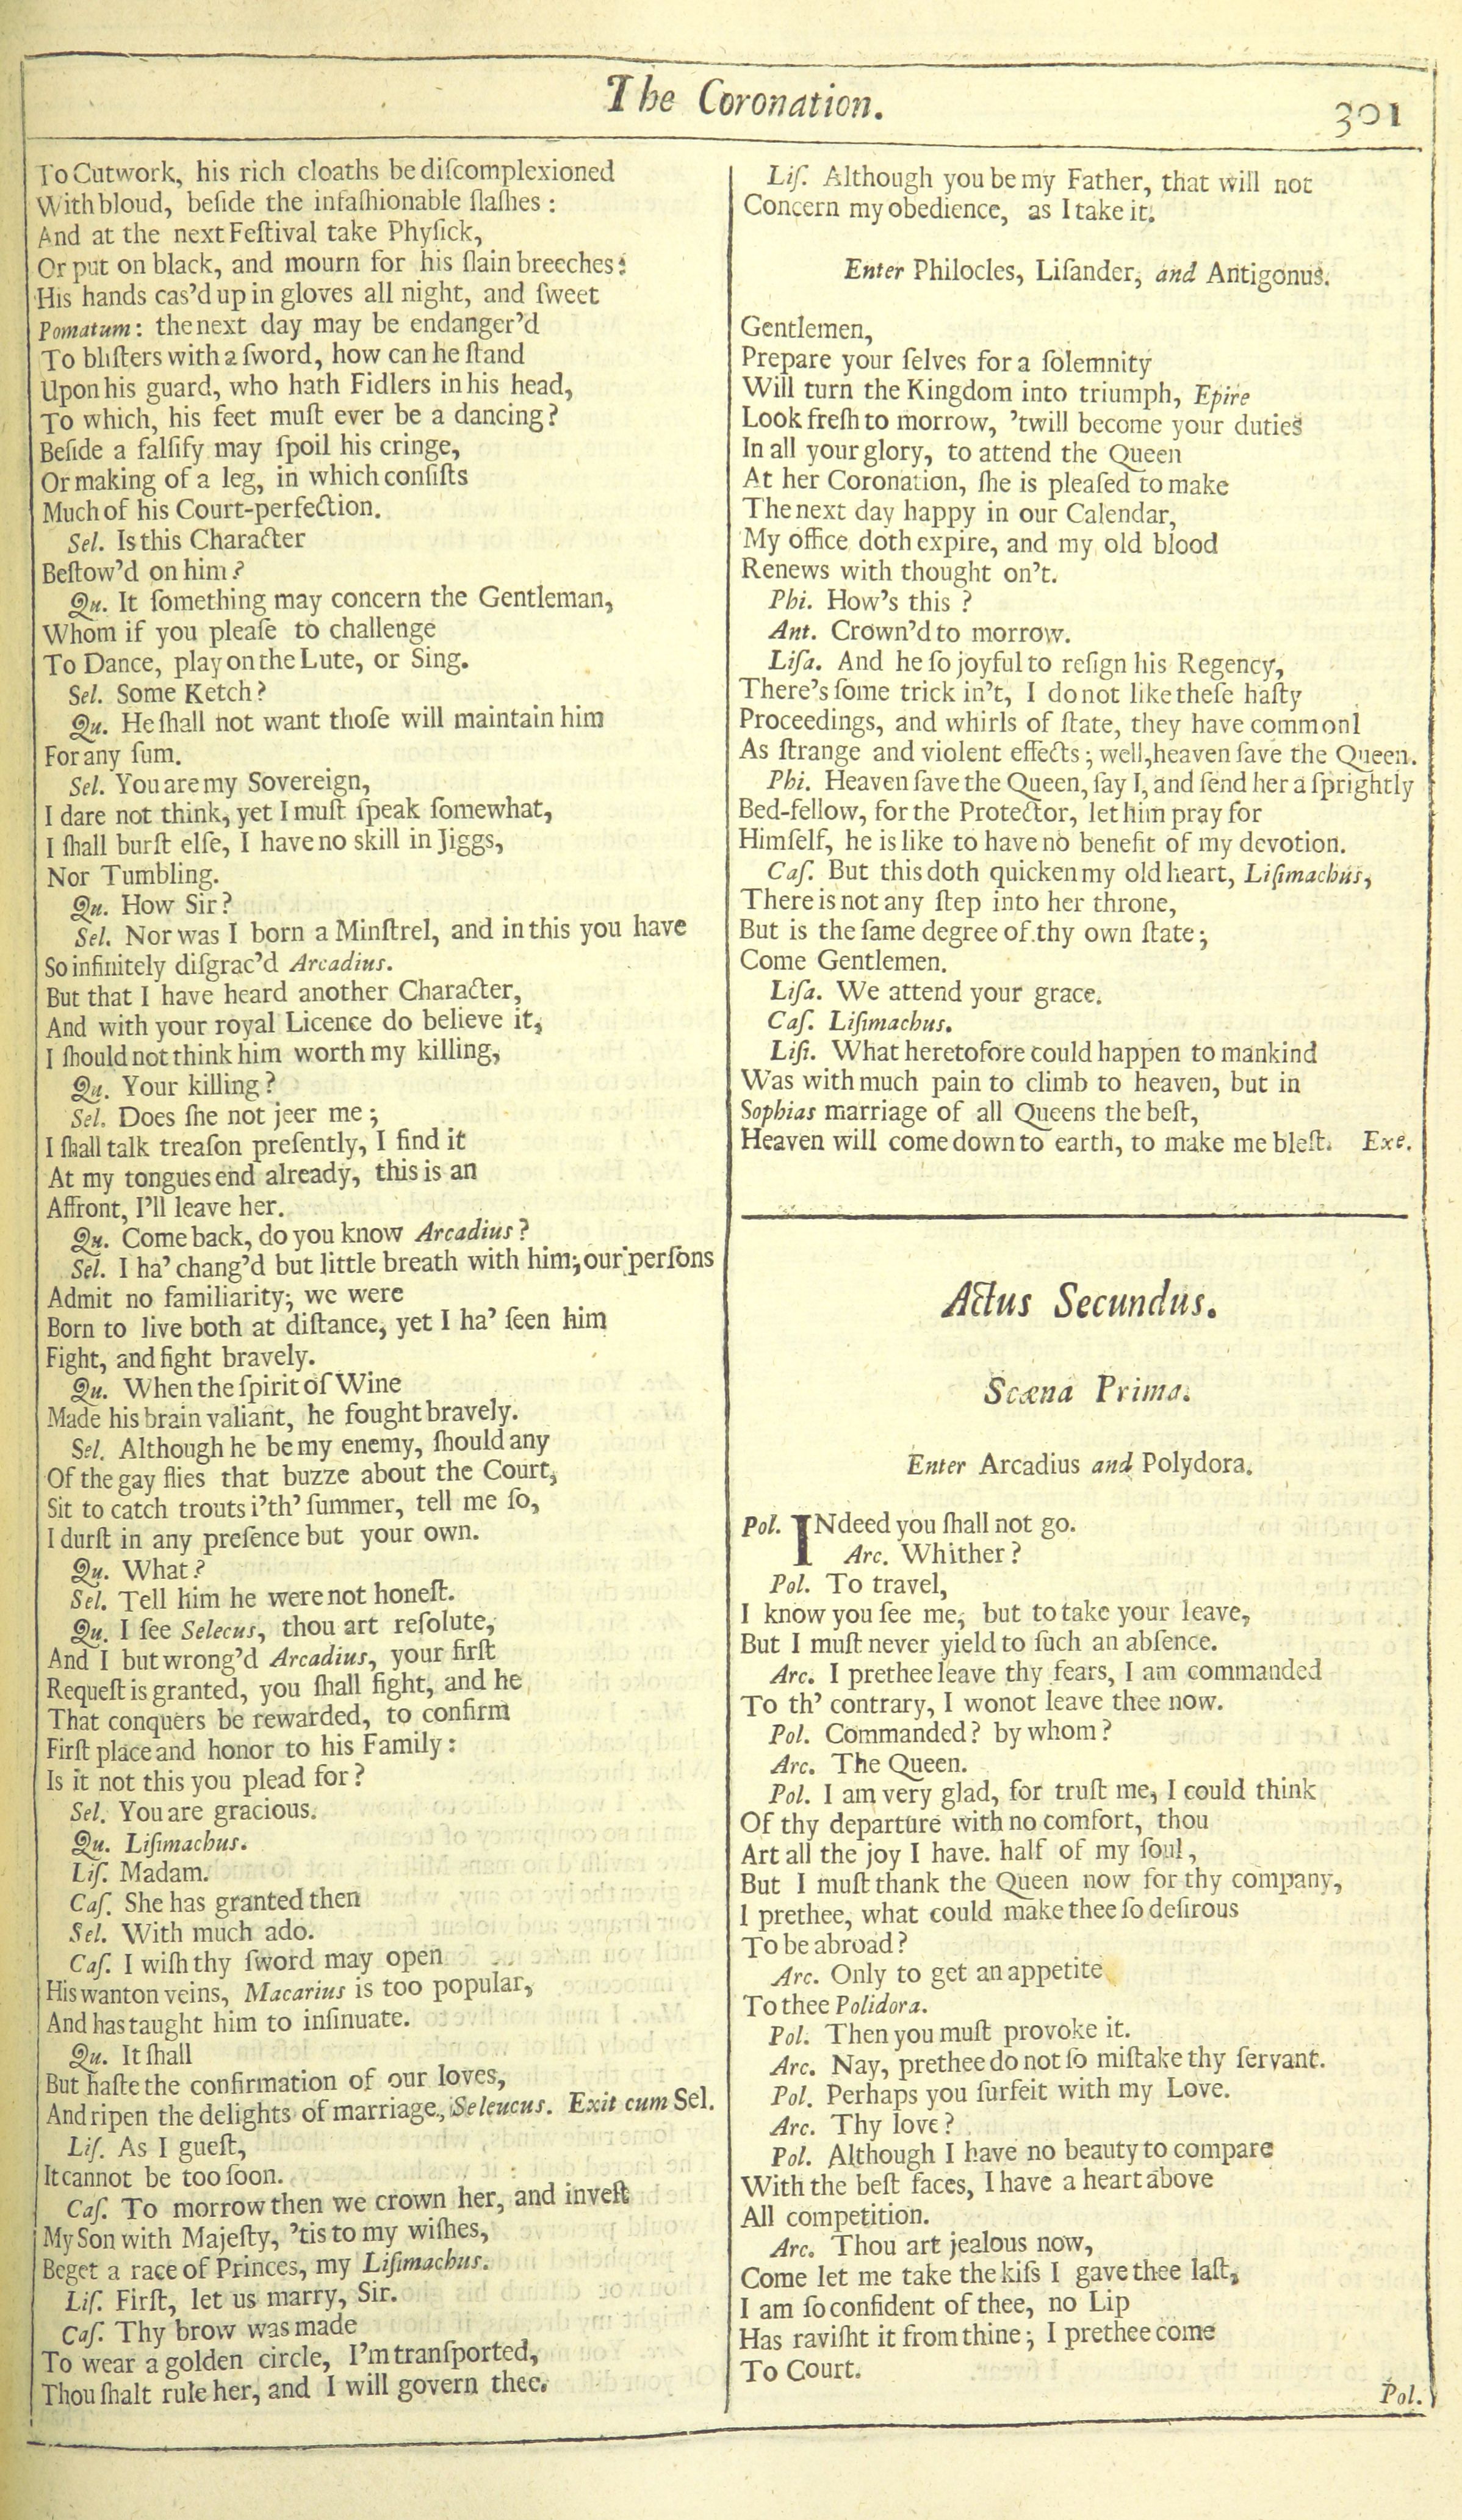 The Coronation.
301
To Cutwork, his rich cloaths be diſcomplexioned
With bloud, beſide the infaſhionable ſlaſhes :
And at the next Feſtival take Phyſick,
Or put on black, and mourn for his ſlain breeches:
His hands cas'd up in gloves all night, and ſweet
Pomatum: the next day may be endanger'd
To bliſters with a ſword, how can he ſtand
Upon his guard, who hath Fidlers in his head,
To which, his feet muſt ever be a dancing?
Beſide a falſify may ſpoil his cringe,
Or making of a leg, in which conſiſts
Much of his Court-perfection.
Sel. Is this Character
Beſtow'd on him?
Qu. It ſomething may concern the Gentleman,
Whom if you pleaſe to challenge
To Dance, play on the Lute, or Sing.
Sel. Some Ketch?
Qu. He ſhall not want thoſe will maintain him
For any ſum.
Sel. You are my Sovereign,
I dare not think, yet I muſt ſpeak ſomewhat,
I ſhall burſt elſe, I have no skill in Jiggs,
Nor Tumbling.
Qu. How Sir?
Sel. Nor was I born a Minſtrel, and in this you have
So infinitely diſgrac'd Arcadius.
But that I have heard another Character,
And with your royal Licence do believe it,
I ſhould not think him worth my killing,
Qu. Your killing?
Sel. Does ſhe not jeer me;
I ſhall talk treaſon preſently, I find it
At my tongues end already, this is an
Affront, I'll leave her.
Qu. Come back, do you know Arcadius?
Sel. I ha' chang'd but little breath with him; our perſons
Admit no familiarity; we were
Born to live both at diſtance, yet I ha' ſeen him
Fight, and fight bravely.
Qu. When the ſpirit of Wine
Made his brain valiant, he fought bravely.
Sel. Although he be my enemy, ſhould any
Of the gay flies that buzze about the Court,
Sit to catch trouts i'th' ſummer, tell me ſo,
I durſt in any preſence but your own.
Qu. What?
Sel. Tell him he were not honeſt.
Qu. I ſee Selecus, thou art reſolute,
And I but wrong'd Arcadius, your firſt
Requeſt is granted, you ſhall fight, and he
That conquers be rewarded, to confirm
Firſt place and honor to his Family:
Is it not this you plead for?
Sel. You are gracious.
Qu. Liſimachus.
Liſ. Madam.
Caſ. She has granted then
Sel. With much ado.
Caſ. I wiſh thy ſword may open
His wanton veins, Macarius is too popular,
And has taught him to inſinuate.
Qu. It ſhall
But haſte the confirmation of our loves,
And ripen the delights of marriage, Seleucus. Exit cum Sel.
Liſ. As I gueſt,
It cannot be too ſoon.
Caſ. To morrow then we crown her, and inveſt
My Son with Majeſty, 'tis to my wiſhes,
Beget a race of Princes, my Liſimachus.
Liſ. Firſt, let us marry, Sir.
Caſ. Thy brow was made
To wear a golden circle, I'm tranſported,
Thou ſhalt rule her, and I will govern thee.
Liſ. Although you be my Father, that will not
Concern my obedience, as I take it.
Enter Philocles, Liſander, and Antigonus.
Gentlemen,
Prepare your ſelves for a ſolemnity
Will turn the Kingdom into triumph, Epire
Look freſh to morrow, 'twill become your duties
In all your glory, to attend the Queen
At her Coronation, ſhe is pleaſed to make
The next day happy in our Calendar,
My office doth expire, and my old blood
Renews with thought on't.
Phi. How's this ?
Ant. Crown'd to morrow.
Liſa. And he ſo joyful to reſign his Regency,
There's ſome trick in't, I do not like theſe haſty
Proceedings, and whirls of ſtate, they have commonl
As ſtrange and violent effects; well, heaven ſave the Queen.
Phi. Heaven ſave the Queen, ſay I, and ſend her a ſprightly
Bed-fellow, for the Protector, let him pray for
Himſelf, he is like to have no benefit of my devotion.
Caſ. But this doth quicken my old heart, Liſimachus,
There is not any ſtep into her throne,
But is the ſame degree of thy own ſtate;
Come Gentlemen.
Liſa. We attend your grace.
Caſ. Liſimachus.
Liſi. What heretofore could happen to mankind
Was with much pain to climb to heaven, but in
Sophias marriage of all Queens the beſt,
Heaven will come down to earth, to make me bleſt. Exe.
Actus Secundus.
Scæna Prima.
Enter Arcadius and Polydora.
Pol. INdeed you ſhall not go.
Arc. Whither?
Pol. To travel,
I know you ſee me, but to take your leave,
But I muſt never yield to ſuch an abſence.
Arc. I prethee leave thy fears, I am commanded
To th' contrary, I wonot leave thee now.
Pol. Commanded? by whom?
Arc. The Queen.
Pol. I am very glad, for truſt me, I could think
Of thy departure with no comfort, thou
Art all the joy I have. half of my ſoul,
But I muſt thank the Queen now for thy company,
I prethee, what could make thee ſo deſirous
To be abroad?
Arc. Only to get an appetite
To thee Polidora.
Pol. Then you muſt provoke it.
Arc. Nay, prethee do not ſo miſtake thy ſervant.
Pol. Perhaps you ſurfeit with my Love.
Arc. Thy love?
Pol. Although I have no beauty to compare
With the beſt faces, I have a heart above
All competition.
Arc. Thou art jealous now,
Come let me take the kiſs I gave thee laſt,
I am ſo confident of thee, no Lip
Has raviſht it from thine; I prethee come
To Court.
Pol.